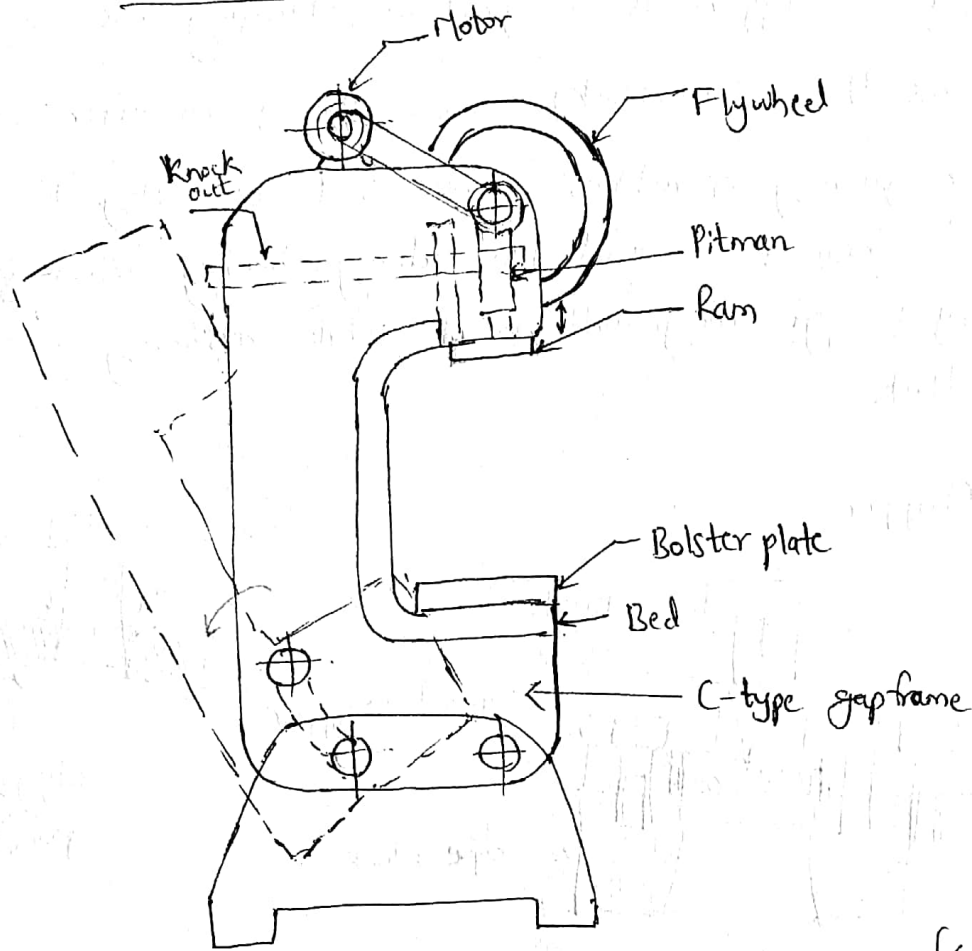 Motor
Flywheel
Knock
out
Pitman
Ram
Bolster plate
Bed
C-type gap frame